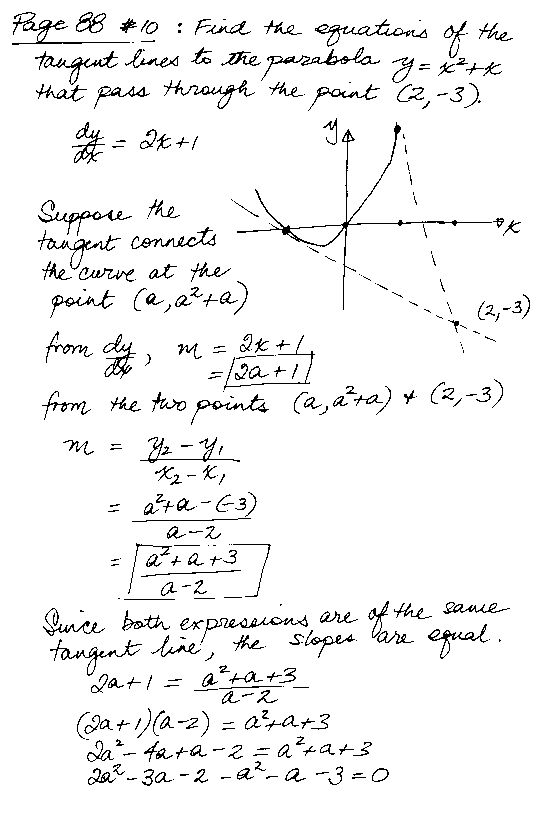 Page 88 #10 : Find the equations of the
tangent lines to the parabola y = x²+x
that pass through the point (2,-3).
dy/dx = 2x+1
y
x
(2,-3)
Suppose the
tangent connects
the curve at the
point (a, a²+a)
from dy/dx, m = 2x+1
= 2a+1
from the two points (a, a²+a) + (2,-3)
m = y₂ - y₁ / x₂ - x₁
= a²+a - (-3) / a-2
= a²+a+3 / a-2
Since both expressions are of the same
tangent line, the slopes are equal.
2a+1 = a²+a+3 / a-2
(2a+1)(a-2) = a²+a+3
2a² - 4a + a - 2 = a²+a+3
2a² - 3a - 2 - a² - a - 3 = 0